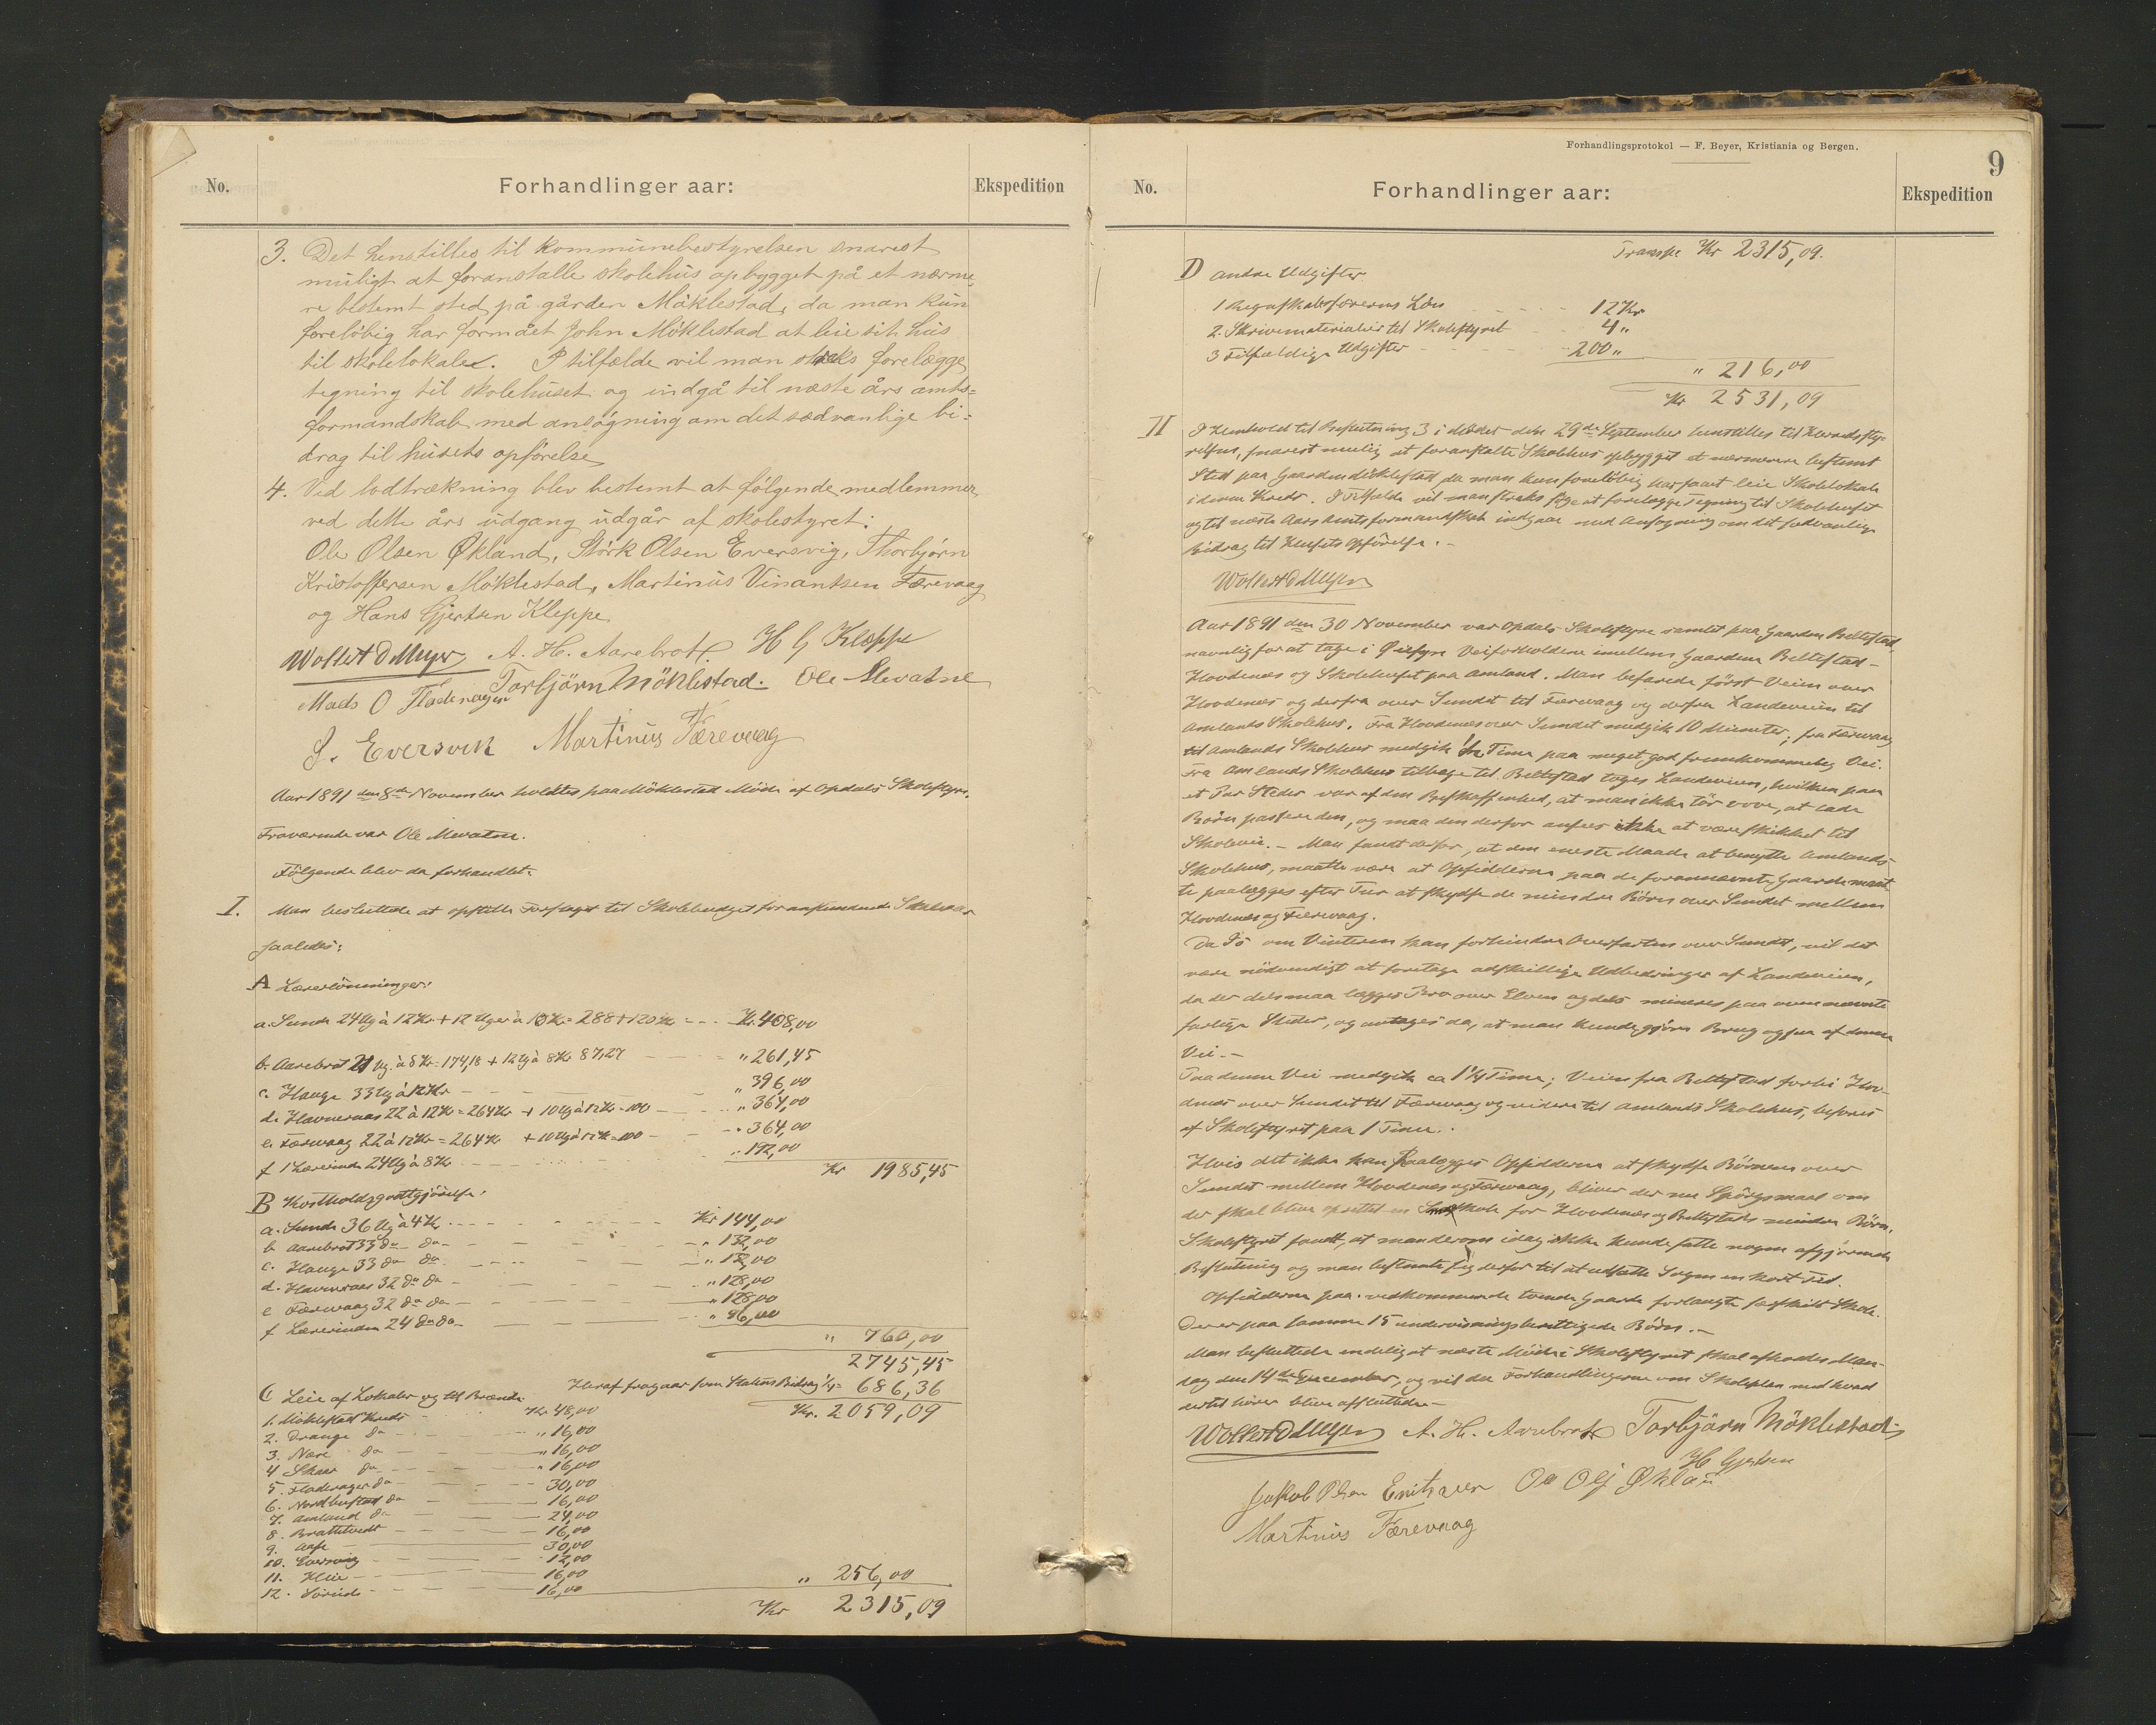 No.
Forhandlinger aar:
Ekspedition
3. Det henstilles til kommunebestyrelsen snarest
muligt at foranstalte skolehus opbygget på et nærme-
re bestemt sted på gården Møklestad, da man kun
foreløbig har formået John Møklestad at leie sit hus
til skolelokale. I tilfælde vil man straks forelægge
tegning til skolehuset og indgå til næste års amts-
formandskab med ansøgning om det sædvanlige bi-
drag til husets opførelse
4. Ved lodtrækning blev bestemt at følgende medlemmer
ved dette års udgang udgår af skolestyret:
Ole Olsen Økland, Størk Olsen Eversvig, Thorbjørn
Kristoffersen Møklestad, Martinus Vinantsen Færevaag
og Hans Gjertsen Kleppe
Wollert D Meyer A. H. Aarebrot. H G Kleppe
Mads O Fladenager Torbjörn Möklestad. Ole Mevatne
S. Eversvik Martinus Færevaag
Aar 1891 den 8de November holdtes paa Möklestad Möde af Opdals Skolestyre.
Fraværende var Ole Mevatne.
Fölgende blev da forhandlet:
I. Man besluttede at opstille Forslaget til Skolebudget for ankommende Skoleaar
saaledes:
A Lærerlönninger:
a. Sunde 24 Ug à 12 Kr + 12 Uger à 10 Kr = 288 + 120 Kr - - - Kr. 408,00
b. Aarebrot 21 Ug. à 8 Kr = 174,18 + 12 Ug à 8 Kr 87,27 - - - " 261,45
c. Hauge 33 Ug à 12 Kr - - - " 396,00
d. Havneraas 22 à 12 Kr = 264 Kr + 10 Ug à 12 Kr = 100 - - - " 364,00
e. Færevaag 22 à 12 Kr = 264 Kr + 10 Ug à 12 Kr = 100 - - - " 364,00
f 1 Lærerinde 24 Ug à 8 Kr - - - " 192,00
Kr 1985,45
B Kostholdsgodtgjörelse:
a. Sunde 36 Ug à 4 Kr - - - Kr 144,00
b Aarebrot 33 do do - - - " 132,00
c. Hauge 33 do do - - - " 132,00
d. Havneraas 32 do do - - - " 128,00
e Færevaag 32 do do - - - " 128,00
f Lærerinden 24 do do - - - " 96,00
" 760,00
2745,45
Heraf fragaar som Statens Bidrag 1/4 = 686,36
Kr. 2059,09
C Leie af Lokaler og til Brænde
1. Möklestad Kreds - - - Kr 48,00
2. Drange do - - - " 16,00
3. Nære do - - - " 16,00
4 Skaar do - - - " 16,00
5. Fladenager do - - - 30,00
6. Nordbustad do - - - 16,00
7. Amland do - - - 24,00
8. Brattetvedt - - - 16,00
9. Aase - - - 30,00
10. Eversvig - - - 12,00
11. Hlie - - - 16,00
12. Söreide - - - 16,00
" 256,00
Kr 2315,09
Forhandlingsprotokol — F. Beyer, Kristiania og Bergen.
9
No.
Forhandlinger aar:
Ekspedition
Transp Kr 2315,09.
D andre Udgifter
1 Regnskabsförerens Lön - - - 12 Kr
2. Skrivematerialier til Skolestyret - - - 4 "
3 Tilfældige Udgifter - - - 200 "
" 216,00
Kr 2531,09
II I Henhold til Beslutning 3 i Mödet den 29de September henstilles til Herredssty-
relsen, snarest mulig at foranstalte Skolehus opbygget et nærmere bestemt
Sted paa Gaarden Möklestad da man kun foreløbig har faaet leie Skolelokale
i denne Kreds. I Tilfælde vil man straks søge at forelægge Tegning til Skolehuset
og til næste Aars Amtsformandskab indgaa med Ansøgning om det sædvanlige
Bidrag til Husets Opförelse. -
Wollert D Meyer
Aar 1891 den 30 November var Opdals Skolestyre samlet paa Gaarden Beltestad,
navnlig for at tage i Øiesyn Veiforholdene imellem Gaardene Beltestad -
Hovdenes og Skolehuset paa Amland. Man befarede först Veien over
Hovdenes og derfra over Sundet til Færevaag og derfra Landeveien til
Amlands Skolehus. Fra Hovdenes over Sundet medgik 10 Minuter; fra Færevaag
til Amlands Skolehus medgik 1/2 Time paa meget god fremkommelig Vei.
Fra Amlands Skolehus tilbage til Beltestad toges Landeveien, hvilken paa
et Par Steder var af den Beskaffenhed, at man ikke tör vove, at lade
Börn passere den, og maa den derfor ansees ikke at være skikket til
Skolevei. - Man fandt derfor, at den eneste Maade at benytte Amlands
Skolehus, maatte være at Opsidderne paa de forannævnte Gaarde maat-
te paalægges efter Tur at skydse de mindre Börn over Sundet mellem
Hovdenes og Færevaag.
Da Is om Vinteren kan forhindre Overfarten over Sundet, vil det
være nödvendigt at foretage adskillige Udbedringer af Landeveien,
da der dels maa lægges Bro over Elven og dels mineres paa ovennævnte
farlige Steder, og antages da, at man kunde gjöre Brug ogsaa af denne
Vei. -
Paa denne Vei medgik ca 1 1/4 Time; Veien fra Beltestad forbi Hov-
denes over Sundet til Færevaag og videre til Amlands Skolehus, befores
af Skolestyret paa 1 Time.
Hvis det ikke kan paalægges Opsidderne at skydse Börnene over
Sundet mellem Hovdenes og Færevaag, bliver der nu Spörgsmaal om
der skal blive oprettet en Småskole for Hovdenes og Beltestads mindre Börn.
Skolestyret fandt, at man derom idag ikke kunde fatte nogen afgjörende
Beslutning og man bestemte sig derfor til at udsætte Sagen en kort Tid.
Opsidderne paa vedkommende tvende Gaarde forlangte særskilt Skole.
Der er paa samme 15 undervisningsberettigede Börn. -
Man besluttede endelig at næste Möde i Skolestyret skal afholdes Man-
dag den 14de December, og vil da Forhandlingerne om Skoleplan med hvad
dertil hörer blive afsluttede -
Wollert D Meyer A. H. Aarebrot Torbjörn Möklestad
H Gjertsen
Jakob Olsen Ole Olsen Økland
Martinus Færevaag